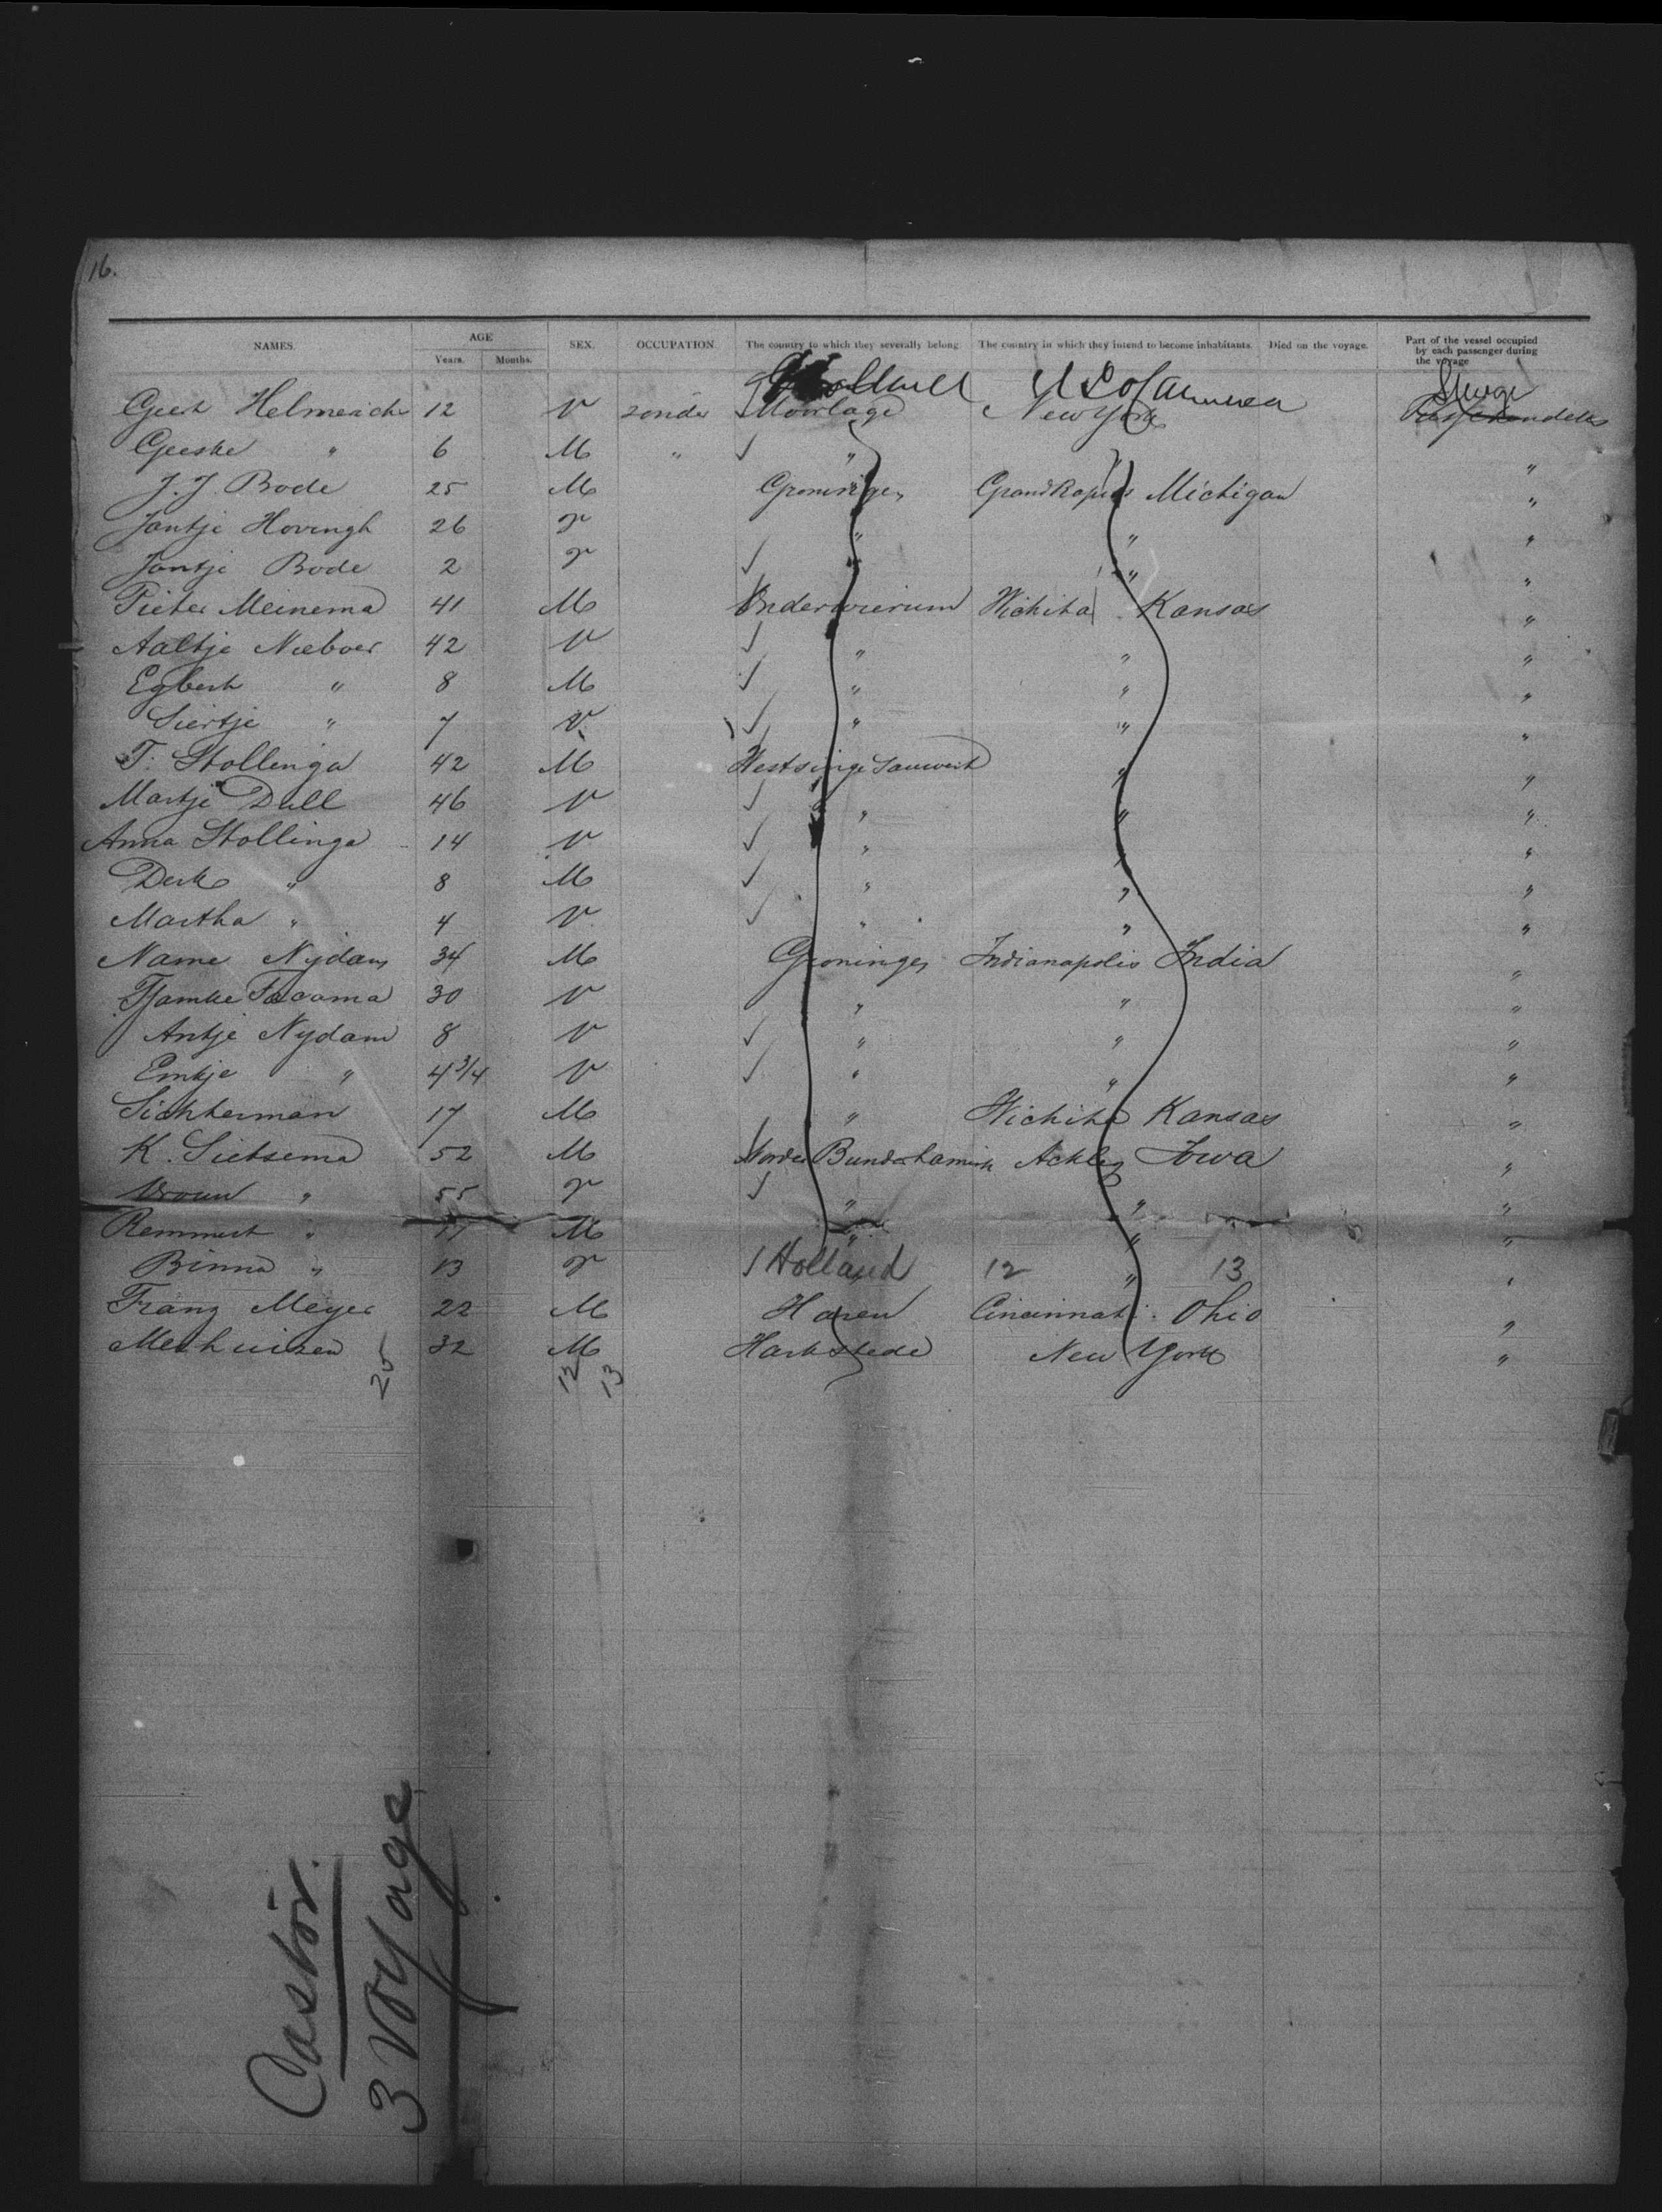 16.
NAMES. AGE SEX. OCCUPATION. The country to which they severally belong. The country in which they intend to become inhabitants. Died on the voyage. Part of the vessel occupied by each passenger during the voyage
Years. Months.
Holland U S of America Steerage
Geert Helmerich 12 V zonder Moorlage New York
Geeske " 6 M " " " "
J. J. Bode 25 M Groningen Grand Rapids Michigan "
Jantje Hovingh 26 V " " "
Jantje Bode 2 V " " "
Pieter Meinema 41 M Onderwierum Wichita Kansas "
Aaltje Nieboer 42 V " " "
Egbert " 8 M " " "
Siertje " 7 V " " "
T. Stollenga 42 M Westsinge Sauwert " "
Martje Dull 46 V " " "
Anna Stollinga 14 V " " "
Derk " 8 M " " "
Martha " 4 V " " "
Name Nydam 34 M Groningen Indianapolis India "
Tjamke Facama 30 V " " "
Antje Nydam 8 V " " "
Emkje " 4 3/4 V " " "
Sichterman 17 M " Wichita Kansas "
K. Sietsema 52 M Norder Bunderhamrik Ackley Iowa "
Vrouw " 55 V " " "
Remmert " 17 M " " "
Binna " 13 V Holland 12 " 13 "
Franz Meyer 22 M Haren Cincinnati Ohio "
Meshuizen 32 M Harkstede New York "
25 12 13
Castor.
3 Voyage